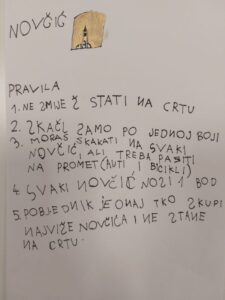 NOVČIĆ
PRAVILA
1. NE SMIJEŠ STATI NA CRTU
2. SKAČI SAMO PO JEDNOJ BOJI
3. MORAŠ SKAKATI NA SVAKI
NOVČIĆ, ALI TREBA PAZITI
NA PROMET (AUTI, I BICIKLI)
4. SVAKI NOVČIĆ NOSI 1 BOD
5. POBJEDNIK JE ONAJ TKO SKUPI
NAJVIŠE NOVČIĆA I NE STANE
NA CRTU.